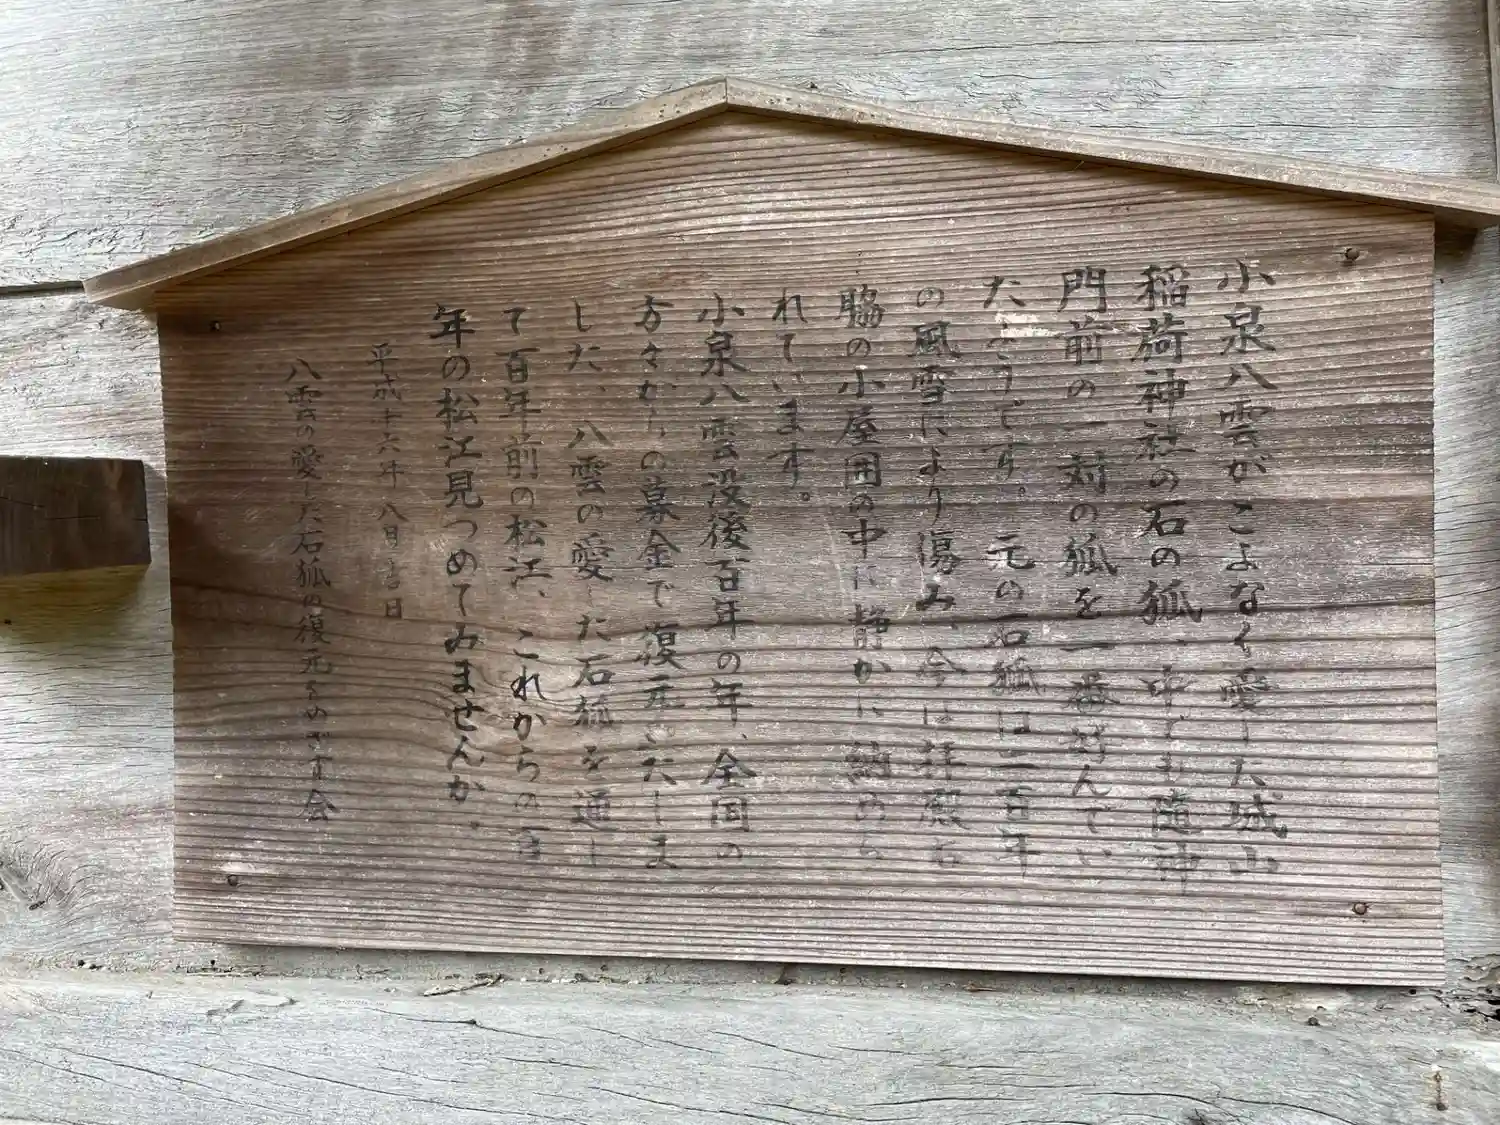 小泉八雲がこよなく愛した城山
稲荷神社の石の狐、中でも随神
門前の一対の狐を一番好んでい
たようです。元の石狐は二百年
の風雪により傷み、今は拝殿右
脇の小屋囲の中に静かに納めら
れています。
小泉八雲没後百年の年、全国の
方々からの募金で復元いたしま
した、八雲の愛した石狐を通し
て百年前の松江、これからの百
年の松江見つめてみませんか。
平成十六年八月吉日
八雲の愛した石狐の復元をめざす会